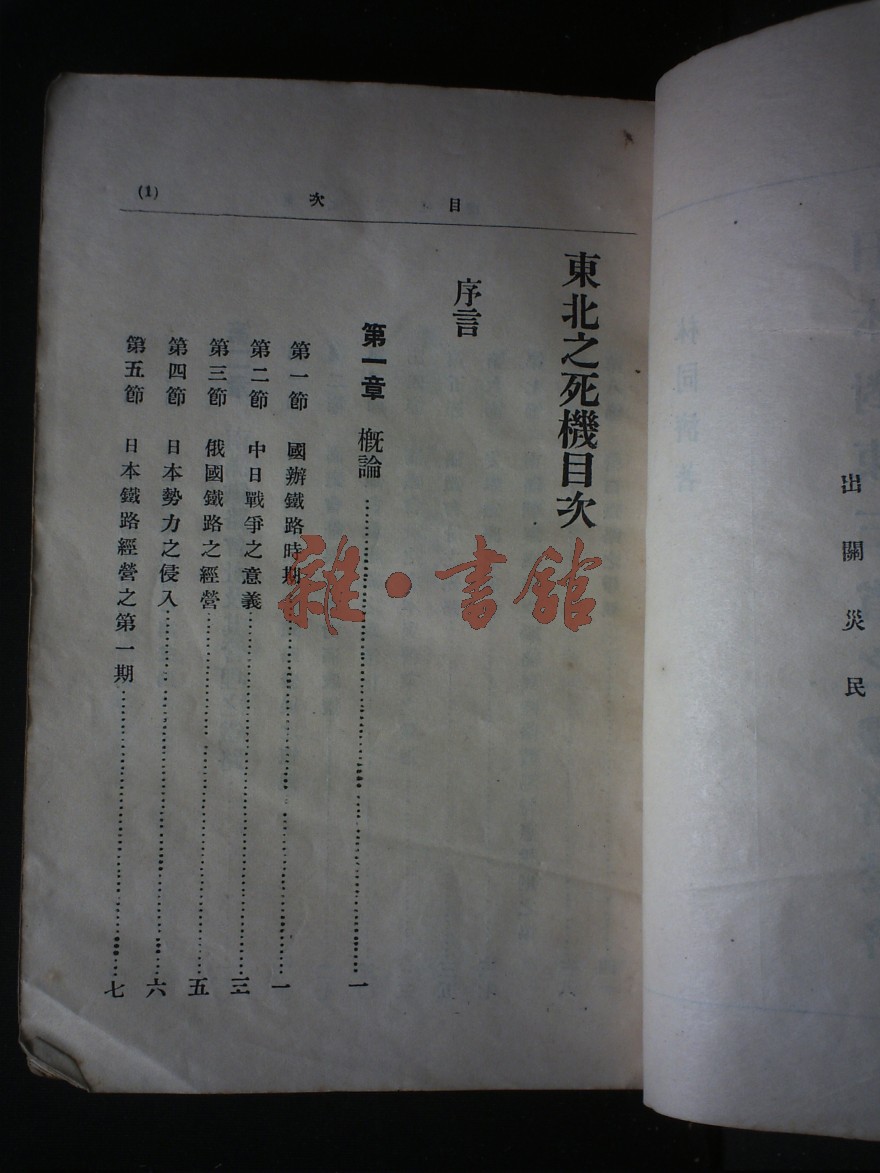 出關災民
目次
(1)
東北之死機目次
序言
第一章 概論……一
第一節 國辦鐵路時期……一
第二節 中日戰爭之意義……三
第三節 俄國鐵路之經營……五
第四節 日本勢力之侵入……六
第五節 日本鐵路經營之第一期……七
雜·書館
林同濟著